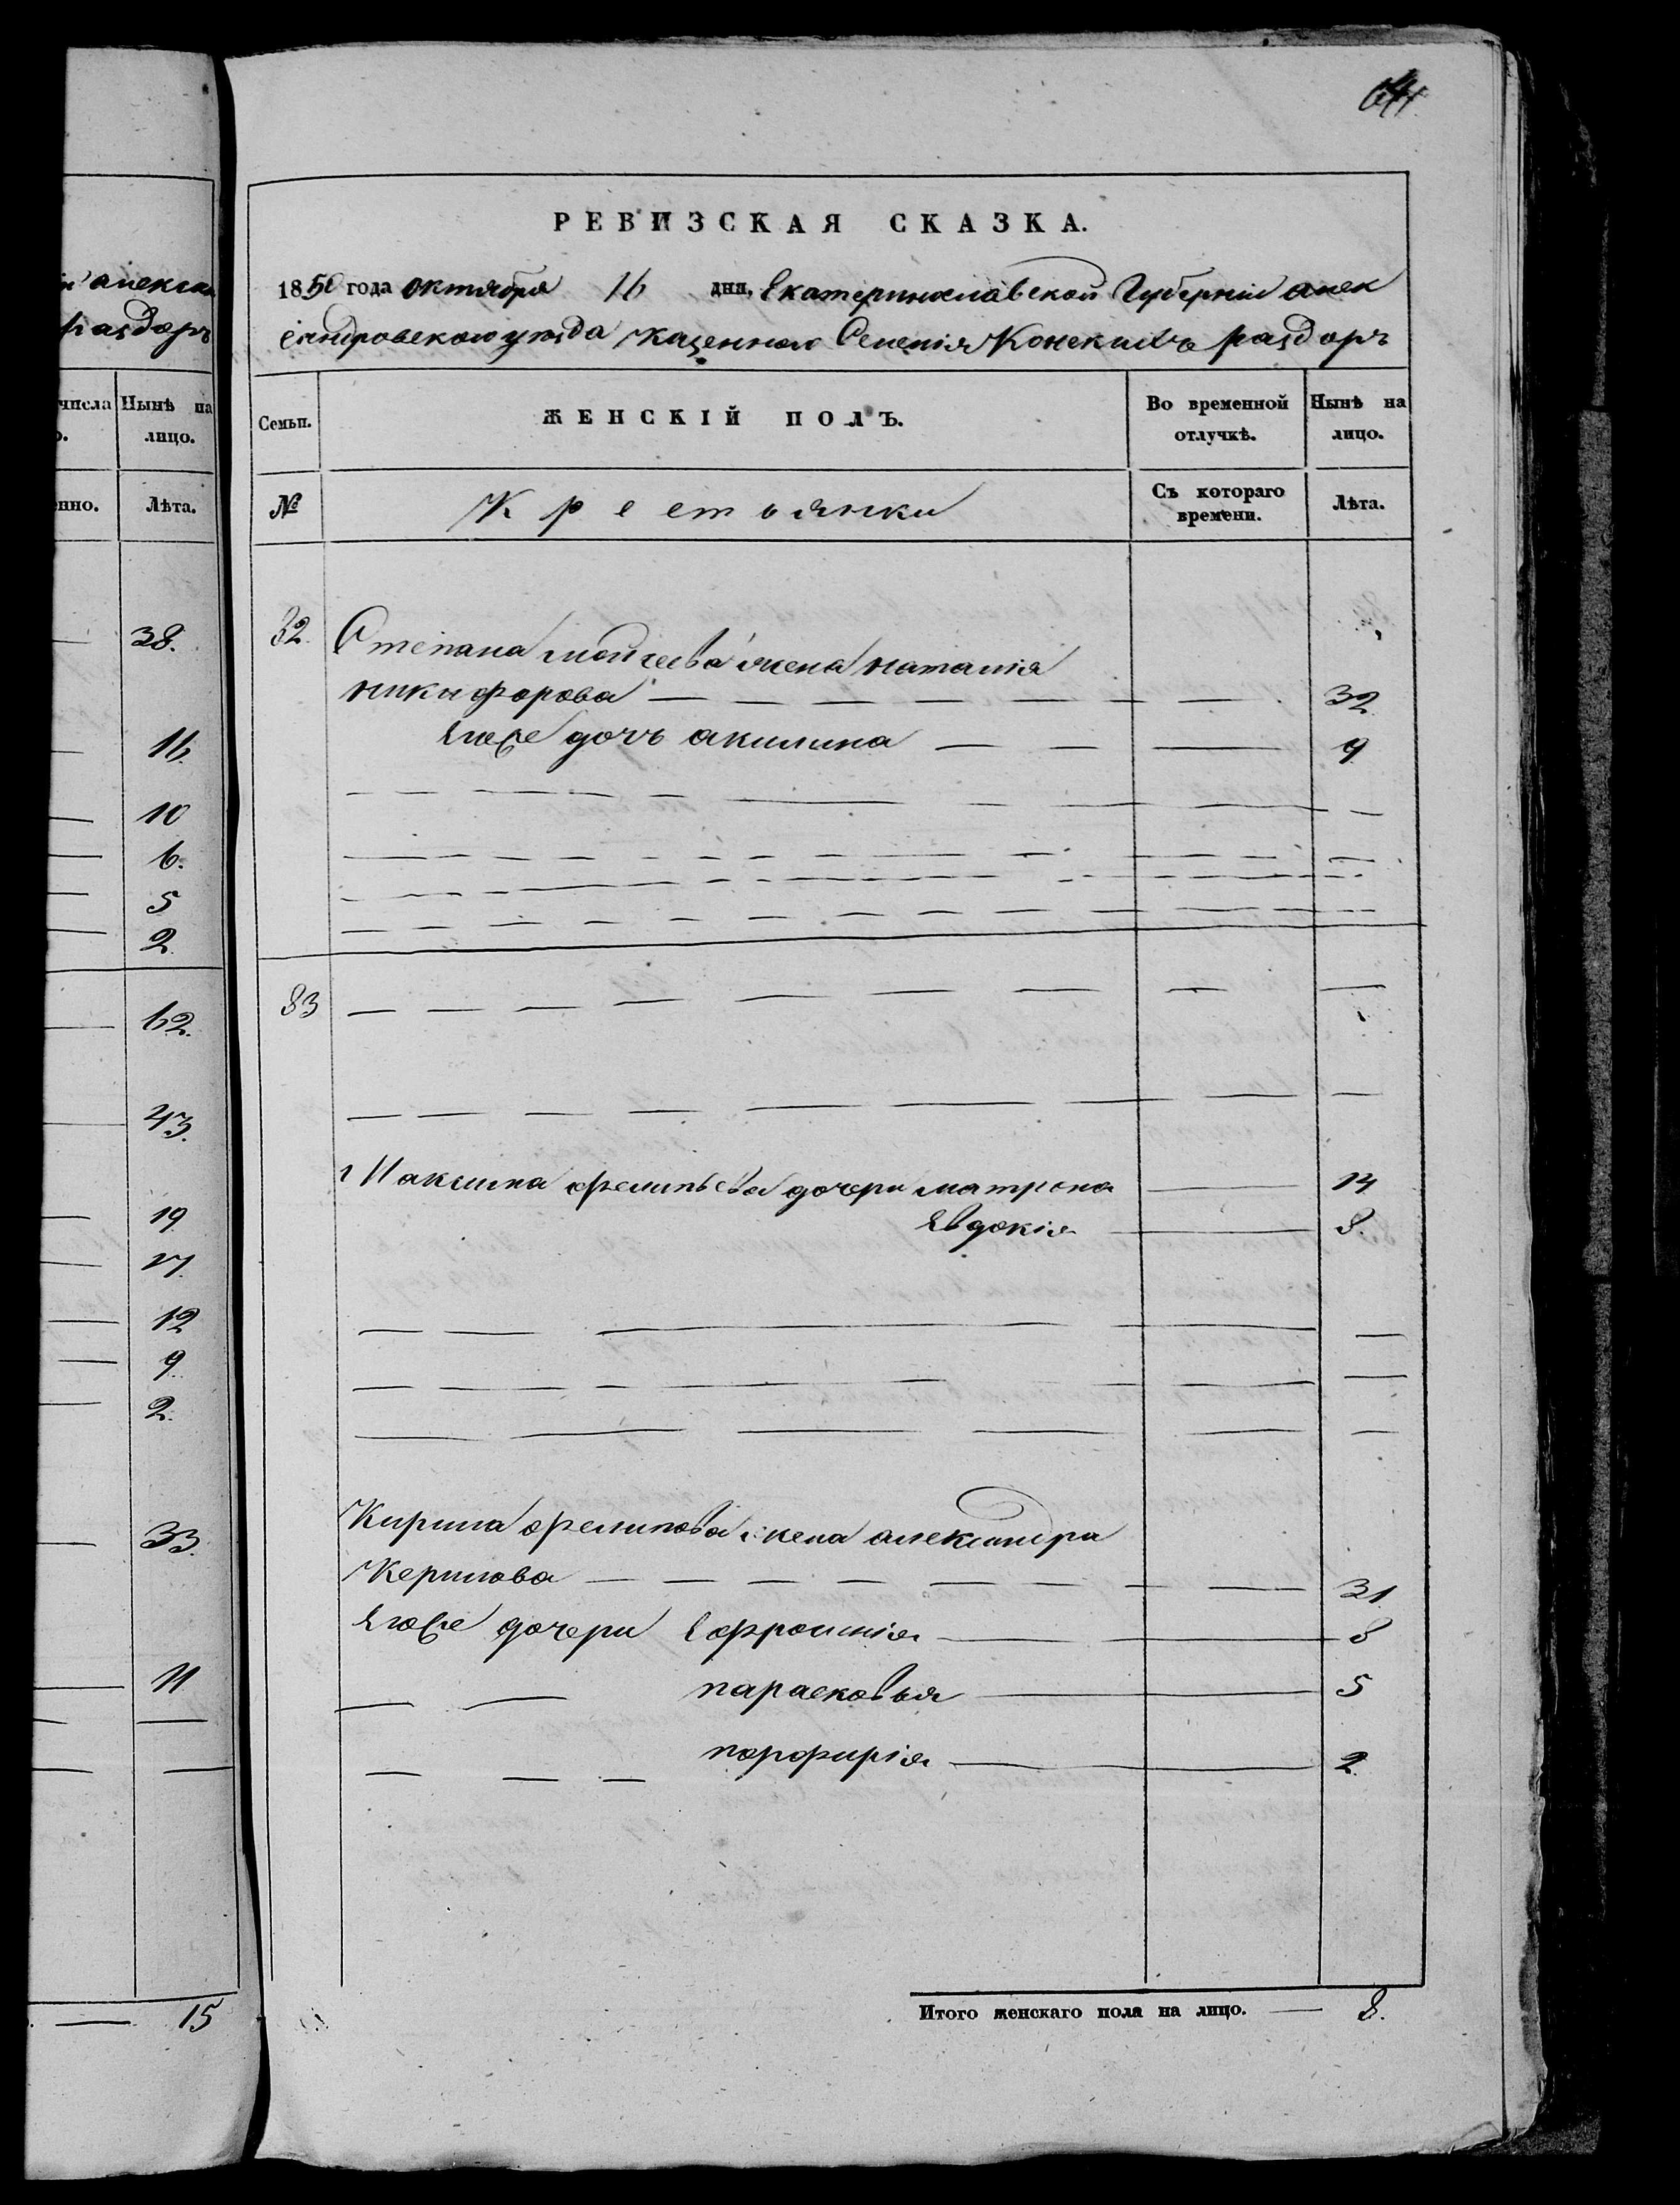 алекса
раздоръ
числа Нынѣ на
о. лицо.
енно. Лѣта.
38.
16.
10
6.
5
2.
62.
43.
19
17.
12
9.
2.
33.
11
15
РЕВИЗСКАЯ СКАЗКА.
1850 года октября 16 дня, Екатеринославской Губерніи алек
сандровского уезда казенного Селенія Конскихъ раздоръ
Семьи. ЖЕНСКІЙ ПОЛЪ. Во временной отлучкѣ. Нынѣ на лицо.
№ Крестьянки Съ котораго времени. Лѣта.
82. Степана моисеева жена наталія
никифорова 32
Егоже дочь акилина 9
83
Максима филипьева дочери матрона 14
Евдокія 8.
Кирила филипова жена александра
Керилова 31
Егоже дочери Ефросинія 8
парасковья 5
порфирія 2
Итого женскаго пола на лицо. 8.